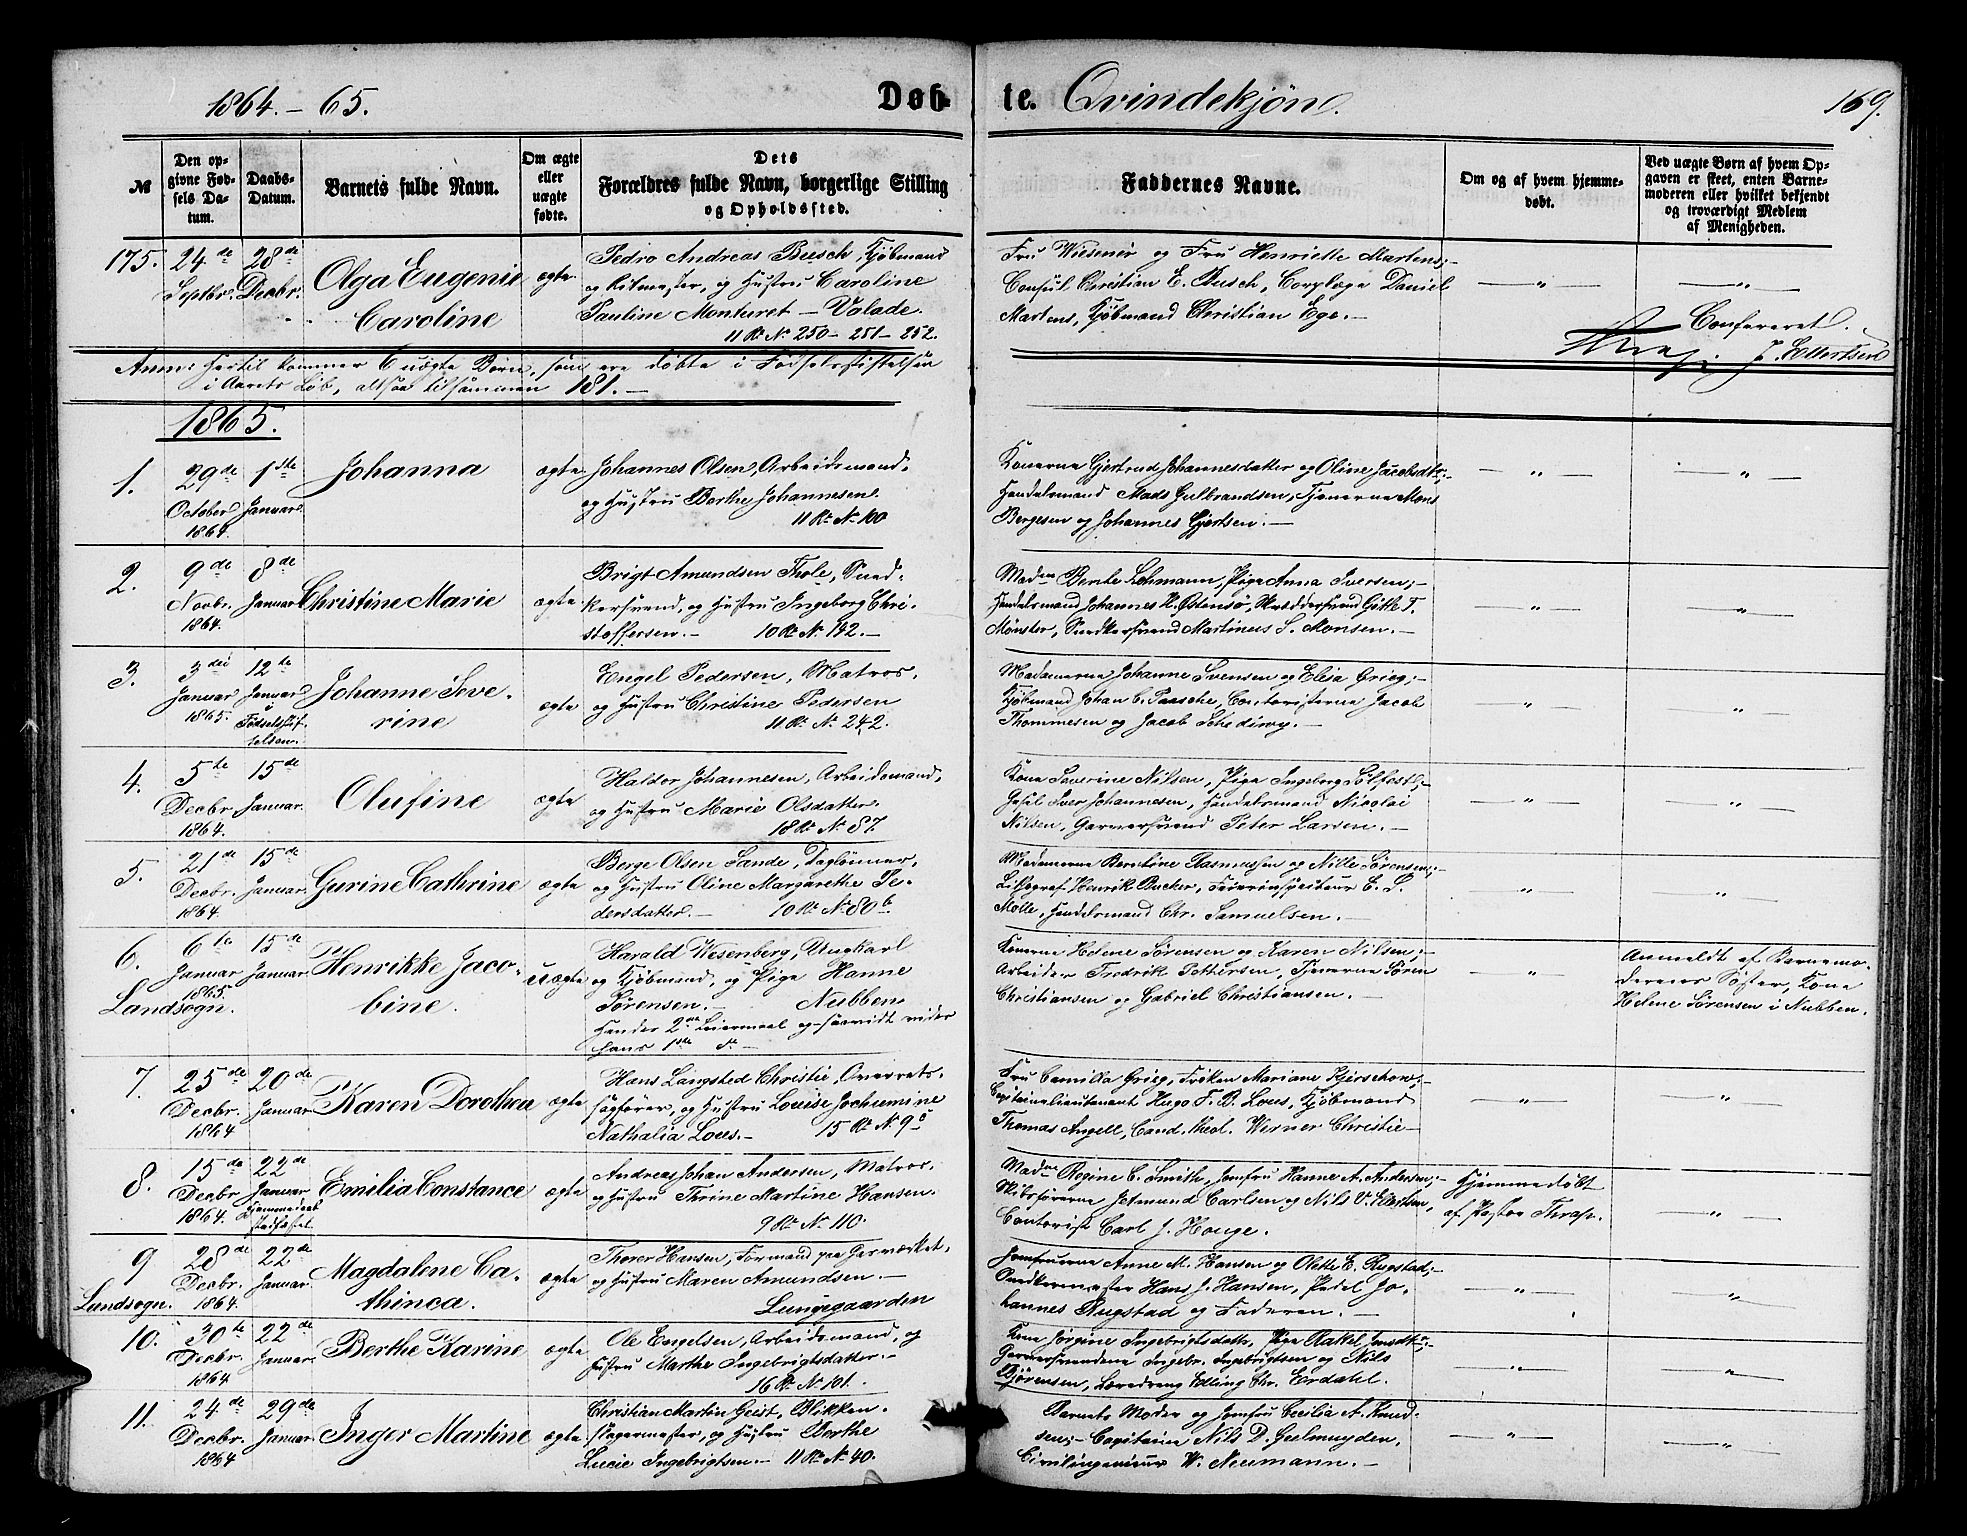 1864.-65.
Døb-
te.
Qvindekjøn.
169.
№
Den op-
givne Fød-
sels Da-
tum.
Daabs-
Datum.
Barnets fulde Navn.
Om ægte
eller
uægte
fødte.
Dets
Forældres fulde Navn, borgerlige Stilling
og Opholdssted.
Faddernes Navne.
Om og af hvem hjemme-
døbt.
Ved uægte Børn af hvem Op-
gaven er skeet, enten Barne-
moderen eller hvilket bekjendt
og troværdigt Medlem
af Menigheden.
175.
24de
Septbr.
28de
Decbr.
Olga Eugenie
Caroline
ægte
Pedro Andreas Busch, Kjøbmand
og Ritmester, og Hustru Caroline
Pauline Monturet - Valade.
11 Rt. N. 250 - 251 - 252.
Fru Wiesener og Fru Henriette Martens;-
Consul Christian E. Busch, Corpslæge Daniel
Martens, Kjøbmand Christian Ege.-
Confereret
J. Ellertsen
Anm: Hertil kommer 6 uægte Børn, som ere døbte i Fødselsstiftelsen
i Aarets Løb, altsaa tilsammen 181.-
1865.
1.
29de
October
1864.
1ste
Januar
Johanna
ægte
Johannes Olsen, Arbeidsmand,
og Hustru Berthe Johannesen.
11 Rt. N. 100
Konerne Gjertrud Johannesdatter og Oline Jacobsdtr;-
Handelsmand Mads Gulbrandsen, Tjenerne Mons
Bergesen og Johannes Gjertsen.-
2.
9de
Novbr.
1864.
8de
Januar
Christine Marie
ægte
Brigt Amundsen Thole, Sned-
kersvend, og Hustru Ingeborg Chri-
stoffersen.- 10 Rt. N. 142.-
Madme Bente Lehmann, Pige Anna Iversen;-
Handelsmand Johannes H. Østensø, Skræddersvend Gitle T.
Mønster, Snedkersvend Martinus S. Monsen.-
3.
3die
Januar
1865.
12te
Januar
i
Fødselsstif-
telsen.
Johanne Seve-
rine
ægte
Engel Pedersen, Matros,
og Hustru Christine Pedersen
11 Rt. N. 242.
Madamerne Johanne Svensen og Elisa Grieg;-
Kjøbmand Johan C. Paasche, Contoristerne Jacob
Thommesen og Jacob Scheding.-
4.
5te
Decbr.
1864.
15de
Januar.
Olufine
ægte
Haldor Johannesen, Arbeidsmand,
og Hustru Marie Olsdatter.
18 Rt. N. 87.
Kone Severine Nilsen, Pige Ingeborg Sølfestd.;-
Gesel Iver Johannesen, Handelsmand Nicolai
Nilsen, Garversvend Peter Larsen.-
5.
21de
Decbr.
1864
15de
Januar.
Gurine Cathrine
ægte
Berge Olsen Sande, Daglønner,
og Hustru Oline Margarethe Pe-
dersdatter.- 10 Rt. N. 80b.
Madamerne Berthine Rasmussen og Nille Sørensen;-
Lithograf Henrik Bucher, Feierinspecteur E. S.
Molle, Handelsmand Chr. Samuelsen.-
6.
Landsogn.
6te
Januar
1865.
15de
Januar.
Henrikke Jaco-
bine.
uægte
Harald Wesenberg, Ungkarl
og Kjøbmand, og Pige Hanne
Sørensen.- Nubben
Hendes 2det Leiermaal og saavidt vides
hans 1ste do -
Konerne Helene Sørensen og Karen Nilsen;-
Arbeider Fredrik Pettersen, Tjenerne Søren
Christiansen og Gabriel Christiansen.-
Anmeldt af Barnemo-
derens Søster, Kone
Helene Sørensen i Nubben.
7.
25de
Decbr.
1864
20de
Januar
Karen Dorothea
ægte
Hans Langsted Christie, Overrets-
sagfører, og Hustru Louise Jochumine
Nathalia Lous.- 15 Rt. N. 9
Fru Camilla Grieg, Frøken Mariane Kjerschow;-
Capitainlieutenant Hugo F. B. Lous, Kjøbmand
Thomas Angell, Cand. theol. Werner Christie-
8.
15de
Decbr.
1864.
22de
Januar
Hjemmedaab
stadfæstet.
Emilia Constance
ægte
Andreas Johan Andersen, Matros,
og Hustru Thrine Martine Hansen.
9 Rt. N. 110.
Madme Regine C. Smith, Jomfru Hanne A. Andersen;-
Skibsførerne Jetmund Carlsen og Nils V. Karlsen,
Contorist Carl J. Houge.
Hjemmedøbt
af Pastor Thrap.
9
Landsogn.
28de
Decbr.
1864.
22de
Januar.
Magdalene Ca-
thinca.
ægte
Thorer Hansen, Formand paa Gasværket,
og Hustru Maren Amundsen.-
Lungegaarden
Jomfruerne Anne M. Hansen og Olette E. Rugstad;-
Snedkermester Hans J. Hansen, Pedel Jo-
hannes Rugstad og Faderen.-
10.
30te
Decbr.
1864
22de
Januar.
Berthe Karine
ægte
Ole Engelsen, Arbeidsmand, og
Hustru Marthe Ingebrigtsdatter.-
16 Rt. N. 101.
Kone Jørgine Ingebrigtsdatter, Pige Rakel;-
Garversvendene Ingebr. Ingebrigtsen og Nils
Bjørensen, Læredreng Edling Chr. Erdahl.
11.
24.de
Decbr.
1864
29de
Januar
Inger Martine
ægte
Christian Martin Geist, Blikken-
slagermester, og Hustru Berthe
Lucie Ingebrigtsen.- 11 Rt. N. 40.
Barnets Moder og Jomfru Cecilia A. Knud-
sen;- Capitaine Nils D. Geelmuyden,
Civilingenieur W. Neumann.-